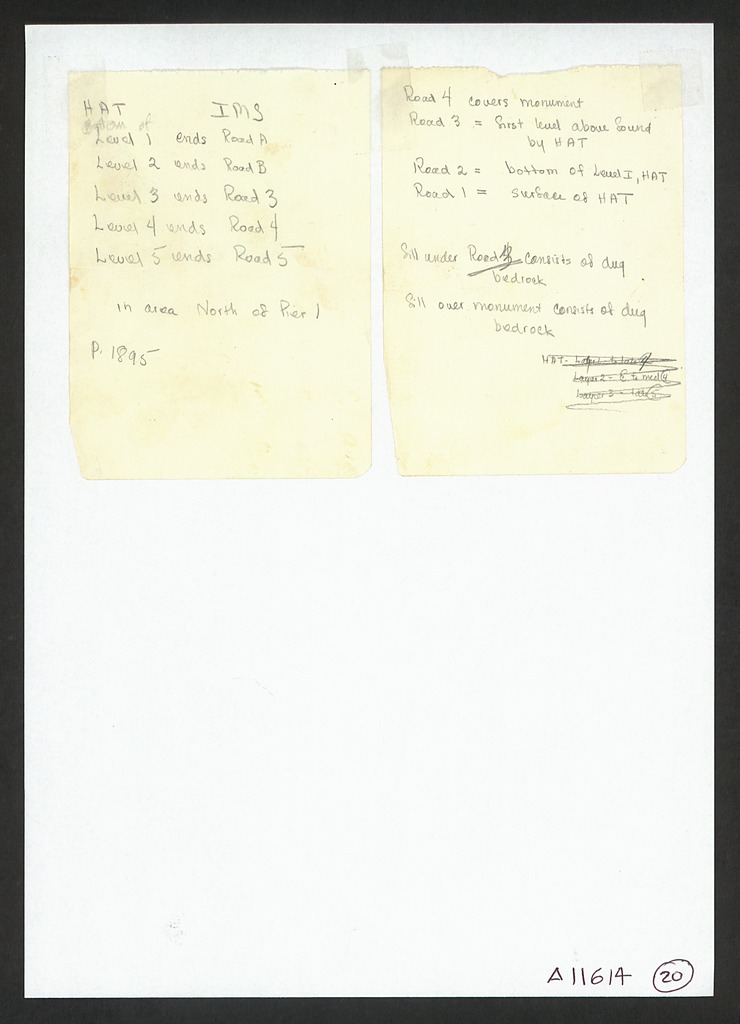 HAT IMS
Bottom of
Level 1 ends Road A
Level 2 ends Road B
Level 3 ends Road 3
Level 4 ends Road 4
Level 5 ends Road 5
in area North of Pier 1
P. 1895
Road 4 covers monument
Road 3 = first level above found
by HAT
Road 2 = bottom of Level I, HAT
Road 1 = surface of HAT
Sill under Road consists of dug
bedrock
Sill over monument consists of dug
bedrock
HAT - Layer 1 - to late
Layer 2 - E to med
Layer 3 - late
A11614 20